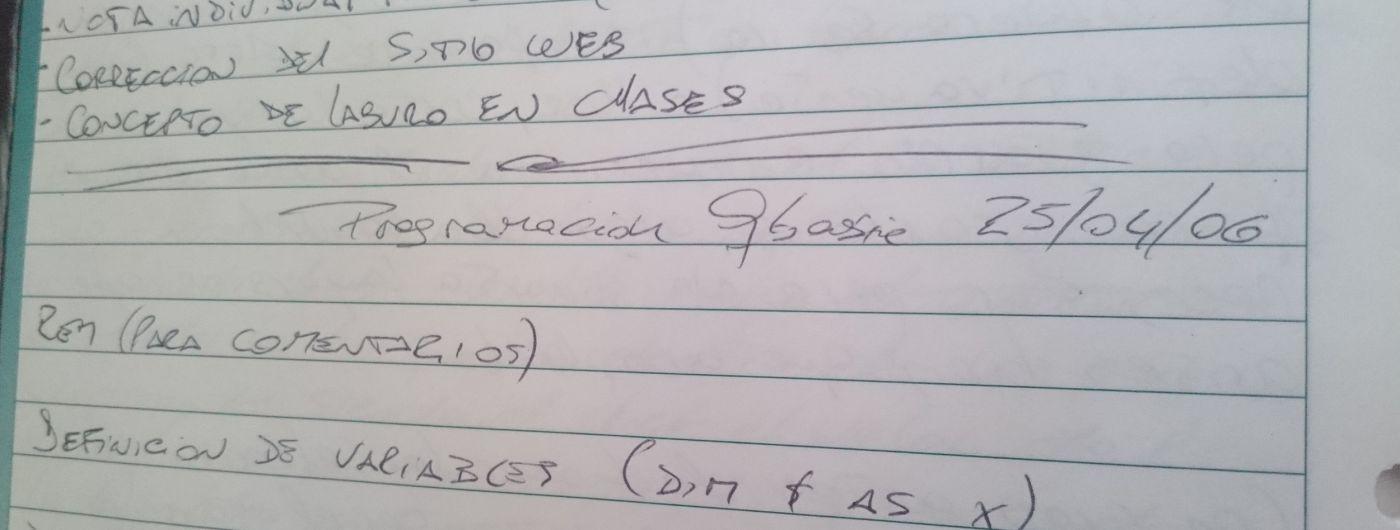 - NOTA INDIVIDUAL
- CORRECCION DEL SITIO WEB
- CONCEPTO DE LABURO EN CLASES
Programacion Qbasic 25/04/06
REM (PARA COMENTARIOS)
DEFINICION DE VARIABLES (DIM $ AS X)